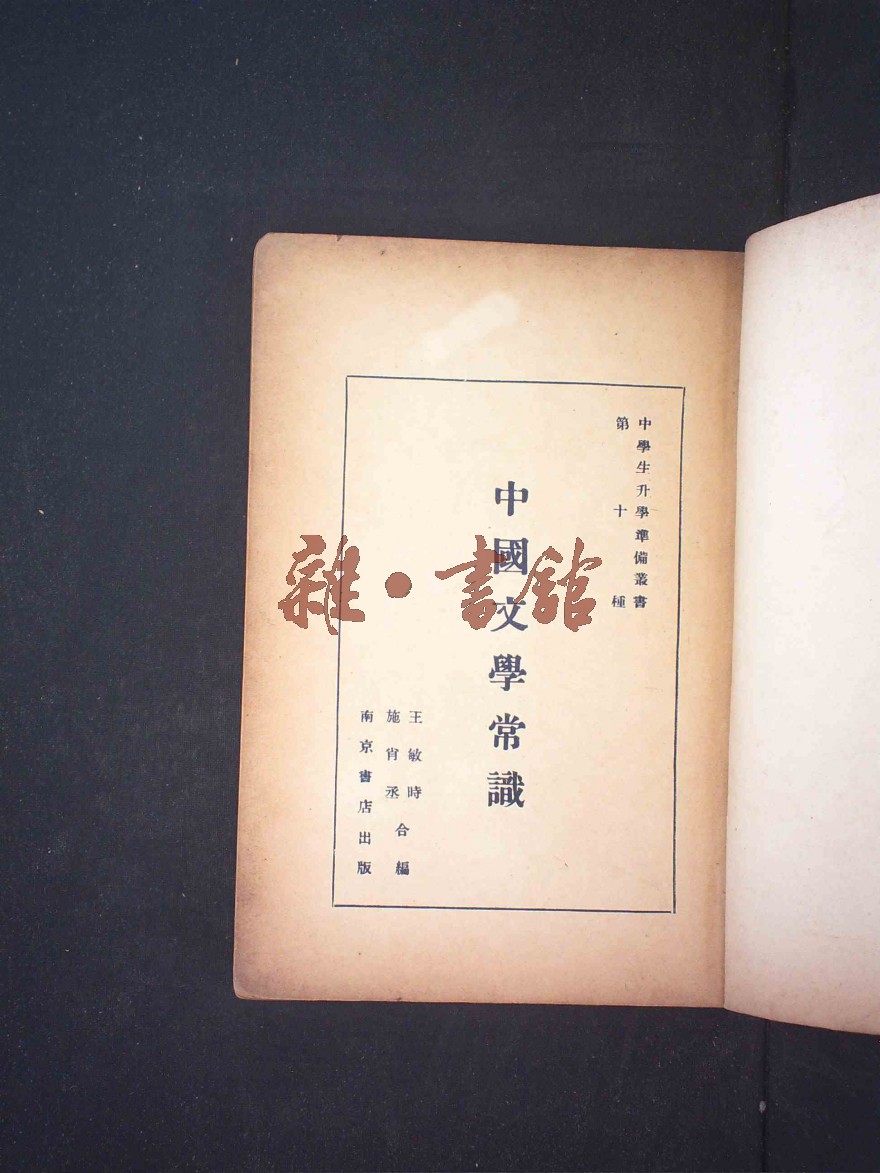 中學生升學準備叢書
第十種
中國文學常識
王敏時
施肖丞
合編
南京書店出版
雜·書館